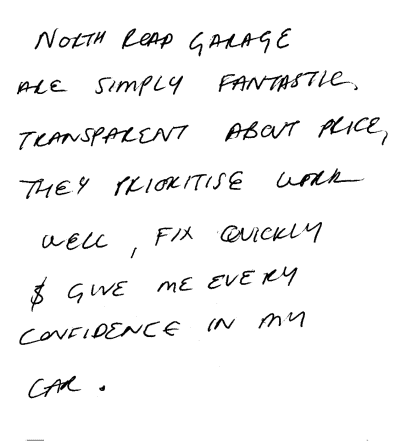 NORTH ROAD GARAGE
ARE SIMPLY FANTASTIC,
TRANSPARENT ABOUT PRICE,
THEY PRIORITISE WORK
WELL, FIX QUICKLY
$ GIVE ME EVERY
CONFIDENCE IN MY
CAR.